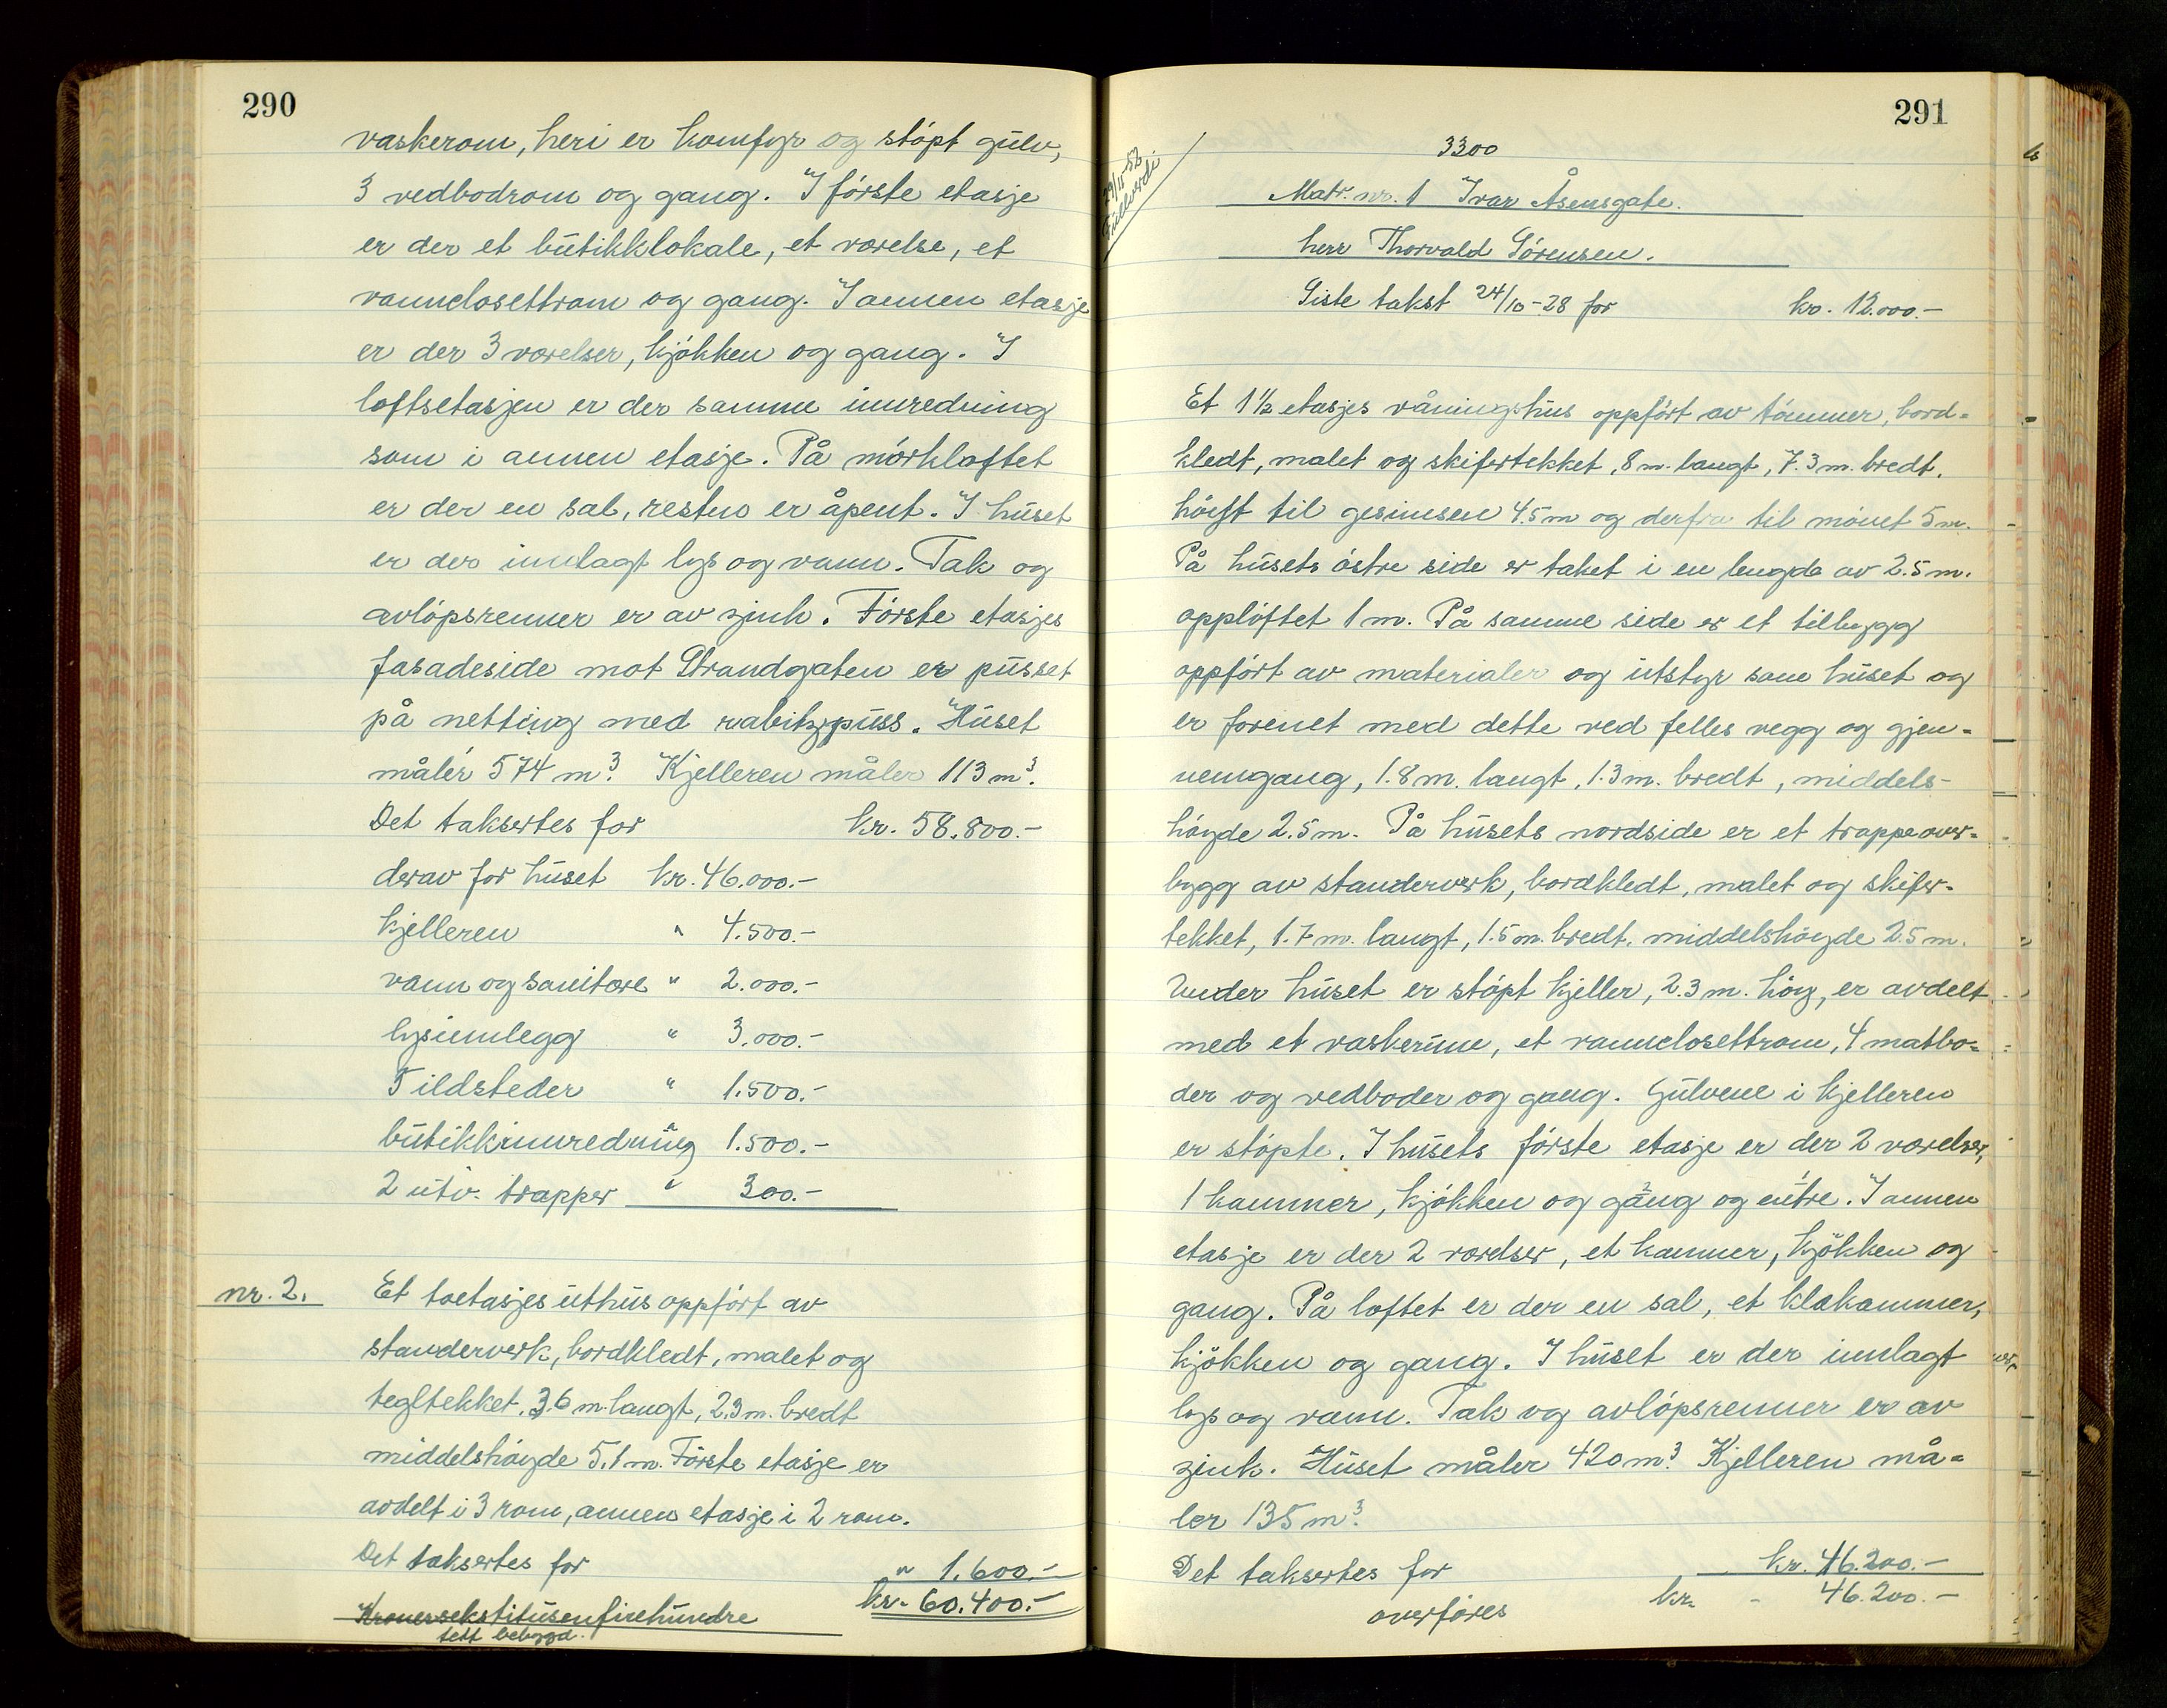 290
vaskerom, heri er komfyr og støpt gulv,
3 vedbodrom og gang. I første etasje
er der et butikklokale, et værelse, et
vannclosettrom og gang. I annen etasje
er der 3 værelser, kjøkken og gang. I
loftsetasjen er der samme innredning
som i annen etasje. På mørkloftet
er der en sal, resten er åpent. I huset
er der innlagt lys og vann. Tak og
avløpsrenner er av zink. Første etasjes
fasadeside mot Strandgaten er pusset
på netting med rabitzpuss. Huset
måler 574 m³. Kjelleren måler 113 m³.
Det taksertes for kr. 58.800.-
derav for huset kr. 46.000.-
kjelleren " 4.500.-
vann og sanitære " 2.000.-
lysinnlegg " 3.000.-
5 ildsteder " 1.500.-
butikkinnredning 1.500.-
2 utv. trapper " 300.-
nr. 2. Et toetasjes uthus oppført av
standerverk, bordkledt, malet og
tegltekket, 3.6 m. langt, 2.3 m. bredt
middelshøyde 5.1 m. Første etasje er
avdelt i 3 rom, annen etasje i 2 rom.
Det taksertes for " 1.600.-
Kronersekstitusenfirehundre kr. 60.400.-
tett bebygd.
291
3300
29/11-52
Fullverdi.
Matr. nr. 1 Ivar Åsensgate.
herr Thorvald Sørensen.
Siste takst 24/10-28 for kr. 12.000.-
Et 1½ etasjes våningshus oppført av tømmer, bord=
kledt, malet og skifertekket, 8 m. langt, 7.3 m. bredt,
høyt til gesimsen 4.5 m og derfra til mønet 5 m.
På husets østre side er taket i en lengde av 2.5 m.
oppløftet 1 m. På samme side er et tilbygg
oppført av materialer og utstyr som huset og
er forenet med dette ved felles vegg og gjen=
nemgang, 1.8 m. langt, 1.3 m. bredt, middels-
høyde 2.5 m. På husets nordside er et trappeover=
bygg av standerverk, bordkledt, malet og skifer=
tekket, 1.7 m. langt, 1.5 m. bredt, middelshøyde 2.5 m.
Under huset er støpt kjeller, 2.3 m. høy, er avdelt
med et vaskerum, et vannclosettrom, 4 matbo=
der og vedboder og gang. Gulvene i kjelleren
er støpte. I husets første etasje er der 2 værelser,
1 kammer, kjøkken og gang og entre. I annen
etasje er der 2 værelser, et kammer, kjøkken og
gang. På loftet er der en sal, et klekammer,
kjøkken og gang. I huset er der innlagt
lys og vann. Tak og avløpsrenner er av
zink. Huset måler 420 m³. Kjelleren må=
ler 135 m³.
Det taksertes for kr. 46.200.-
overføres kr. - 46.200.-